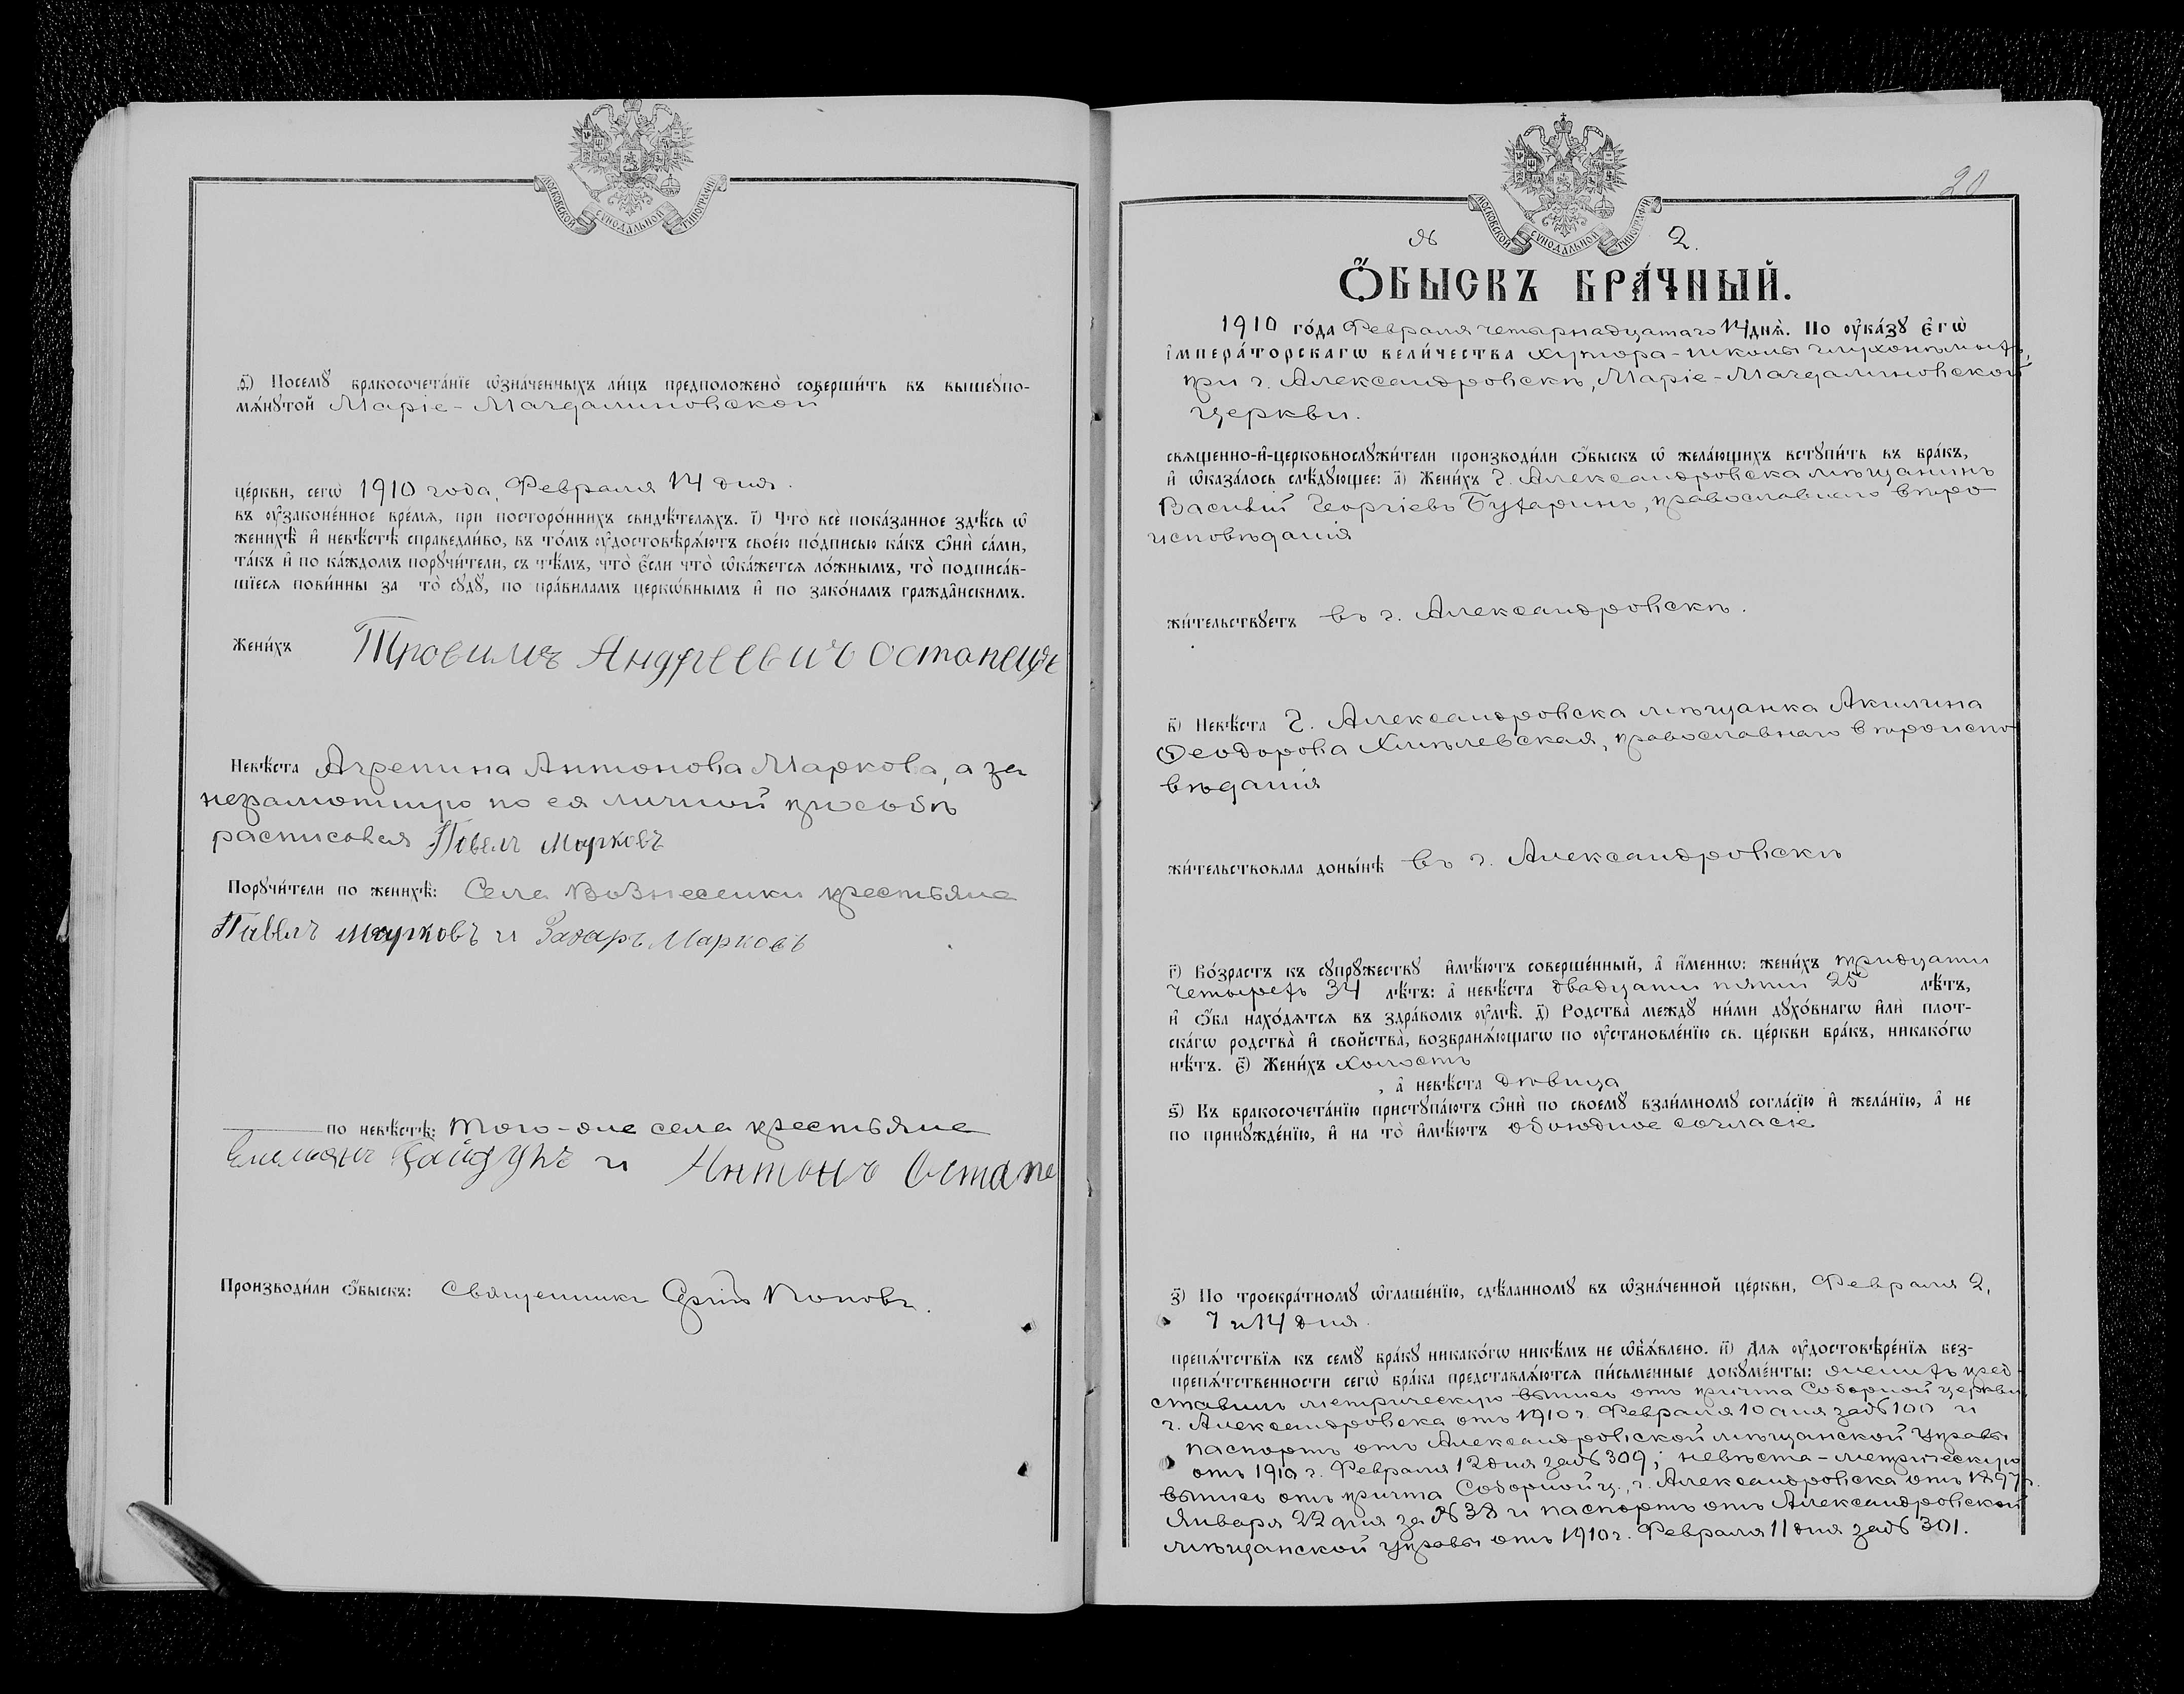 МОСКОВСКОЙ СУНОДАЛЬНОЙ ТИПОГРАФІИ
Посемꙋ̀ бракосочета́нїе ѡ҆зна́ченныхъ ли́цъ предположено̀ соверши́ть въ вышеꙋпо-
мѧ́нꙋтой Маріе-Магдалиновской
це́ркви, сегѡ̀ 1910 года, Февраля 14 дня.
въ ᲂу҆законе́нное вре́мя, при посторо́ннихъ свидѣ́теляхъ. і҃) Что̀ всѐ пока́занное здѣ́сь ѡ҆
женихѣ̀ и҆ невѣ́стѣ справедли́во, въ то́мъ ᲂу҆достовѣрѧ́ютъ свое́ю по́дписью ка́къ ѻ҆нѝ са́ми,
та́къ и҆ по ка́ждомъ порꙋчи́тели, съ тѣ́мъ, что̀ є҆́сли что̀ ѡ҆ка́жется ло́жнымъ, то̀ подписа́в-
шїеся пови́нны за то̀ сꙋдꙋ̀, по пра́виламъ церкѡ́внымъ и҆ по зако́намъ гражда̂нскимъ.
Жени́хъ Трофимъ Андреевичъ
Невѣ́ста Агрепина Антонова Маркова, а за
неграмотную по ея личной просьбѣ
расписовся Павелъ Марковъ
Порꙋчи́тели по женихѣ̀: Села Вознесенки крестьяне
Павелъ Марковъ и Захаръ Марковъ
по невѣ́стѣ: того-же села крестьяне
Емельянъ и Антонъ Остапе
Производи́ли ѻ҆́быскъ: Священникъ Поповъ.
20
МОСКОВСКОЙ СУНОДАЛЬНОЙ ТИПОГРАФІИ
№ 2.
Ѻ҆́БЫСКЪ БРА́ЧНЫЙ.
1910 го́да Февраля четырнадцатаго 14 днѧ̀. По ᲂу҆ка́зꙋ є҆гѡ̀
і҆мпера́торскагѡ вели́чества хутора-школы глухонѣмыхъ,
при г. Александровскѣ, Маріе-Магдалиновской
церкви.
священно-и҆-церковнослꙋжи́тели производи́ли ѻ҆́быскъ ѡ҆ жела́ющихъ встꙋпи́ть въ бра́къ,
и҆ ѡ҆каза́лось слѣ́дꙋющее: а҃) Жени́хъ г. Александровска мѣщанинъ
Василій Георгіевъ Бухаринъ, православнаго вѣро
исповѣданія
жи́тельствꙋетъ въ г. Александровскѣ.
в҃) Невѣ́ста г. Александровска мѣщанка Акилина
Ѳеодорова Хмѣлевская, православнаго вѣроиспо
вѣданія
жи́тельствовала доны́нѣ въ г. Александровскѣ
г҃) Во́зрастъ къ сꙋпрꙋ́жествꙋ и҆мѣ́ютъ соверше́нный, а҆ и҆́меннѡ: жени́хъ тридцати
четырехъ 34 лѣ́тъ: а҆ невѣ́ста двадцати пяти 25 лѣ́тъ,
и҆ ѻ҆́ба нахо́дятся въ здра́вомъ ᲂу҆мѣ̀. д҃) Родства̀ междꙋ̀ ни́ми дꙋхо́внагѡ и҆лѝ плот-
ска́гѡ родства̀ и҆ свойства̀, возбранѧ́ющагѡ по ᲂу҆становле́нїю св. це́ркви бра́къ, никако́гѡ
нѣ́тъ. є҃) Жени́хъ холостъ
, а҆ невѣ́ста дѣвица
ѕ҃) Къ бракосочета́нїю пристꙋпа́ютъ ѻ҆нѝ по своемꙋ̀ взаи́мномꙋ согла́сїю и҆ жела́нїю, а҆ не
по принꙋжде́нїю, и҆ на то̀ и҆мѣ́ютъ обоюдное согласіе
з҃) По троекра́тномꙋ ѡ҆глаше́нїю, сдѣ́ланномꙋ въ ѡ҆зна́ченной це́ркви, Февраля 2,
7 и 14 дня.
препѧ́тствїя къ семꙋ̀ бра́кꙋ никако́гѡ никѣ́мъ не ѡ҆б̾ѧ́влено. и҃) Для ᲂу҆достовѣре́нїя без-
препѧ́тственности сегѡ̀ бра́ка представлѧ́ются пи́сьменные докꙋме́нты: женихъ пред-
ставилъ метрическую выпись отъ причта Соборной церкви
г. Александровска отъ 1910 г. Февраля 10 дня за № 100 и
паспортъ отъ Александровской мѣщанской Управы
отъ 1910 г. Февраля 12 дня за № 309; невѣста-метрическую
выпись отъ причта Соборной ц., г. Александровска отъ 1897 г.
Января 22 дня за № 38 и паспортъ отъ Александровской
мѣщанской Управы отъ 1910 г. Февраля 11 дня за № 301.